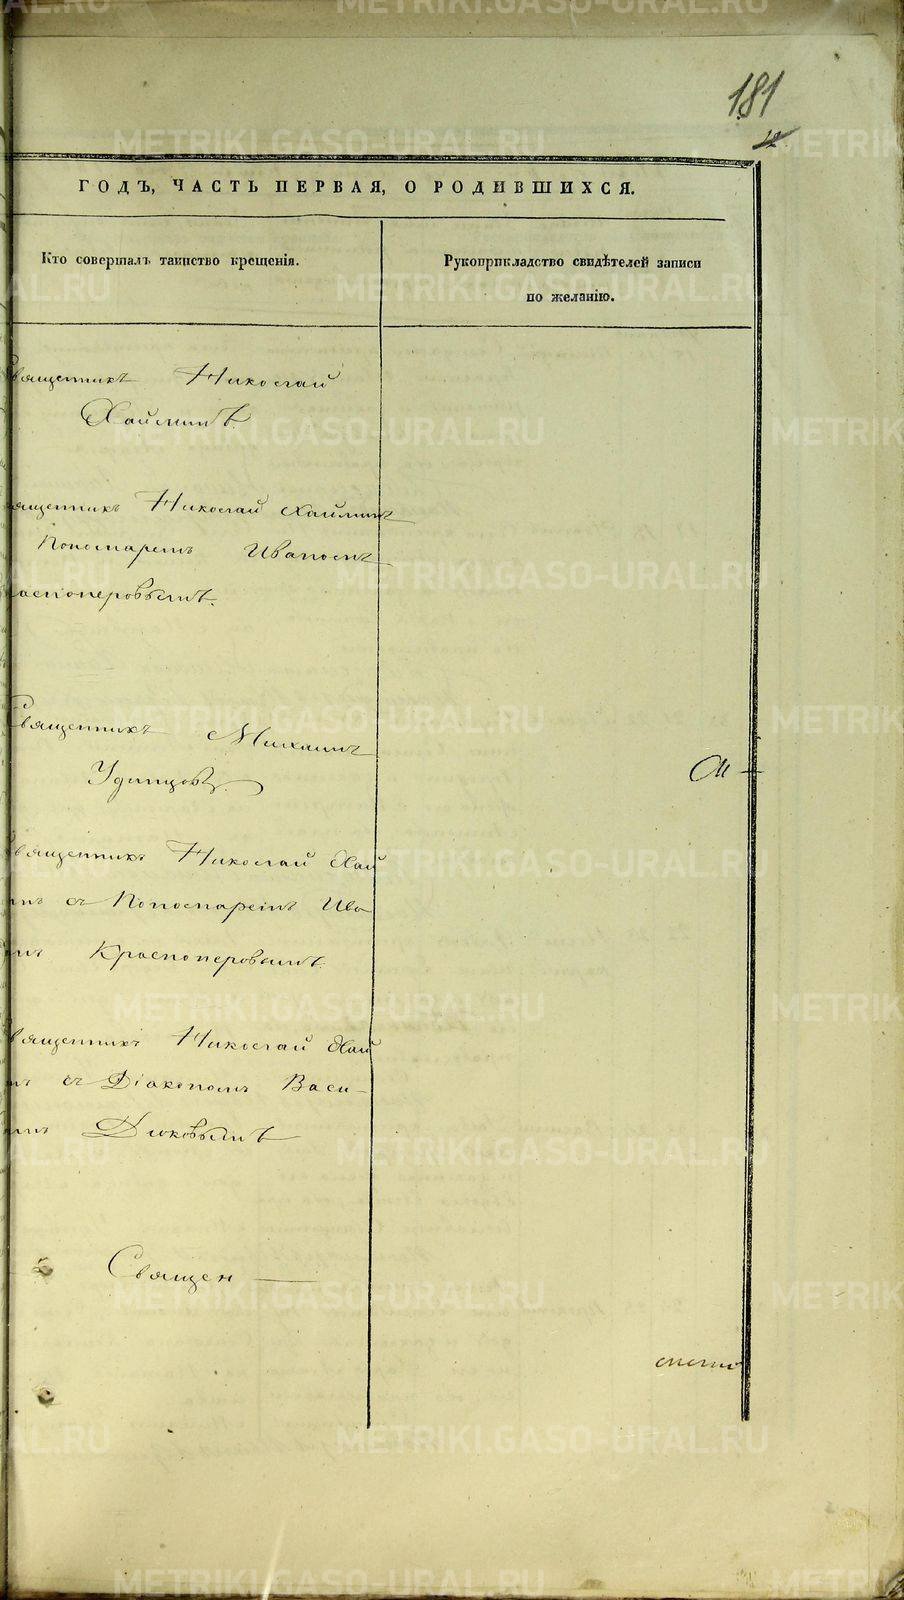 181
ГОДЪ, ЧАСТЬ ПЕРВАЯ, О РОДИВШИХСЯ.
Кто совершалъ таинство крещенія.
Рукоприкладство свидѣтелей записи
по желанію.
Священникъ Николай
Хаймин
вященникъ Николай Хаймин
Пономаремъ Иваномъ
расноперовымъ.
Священникъ Михаилъ
Удинцовъ.
Священникъ Николай Хай
съ Пономаремъ Ива
Красноперовымъ.
Священникъ Николай Хай
съ Діакономъ Васи-
Дюковымъ
Священ
METRIKI.GASO-URAL.RU